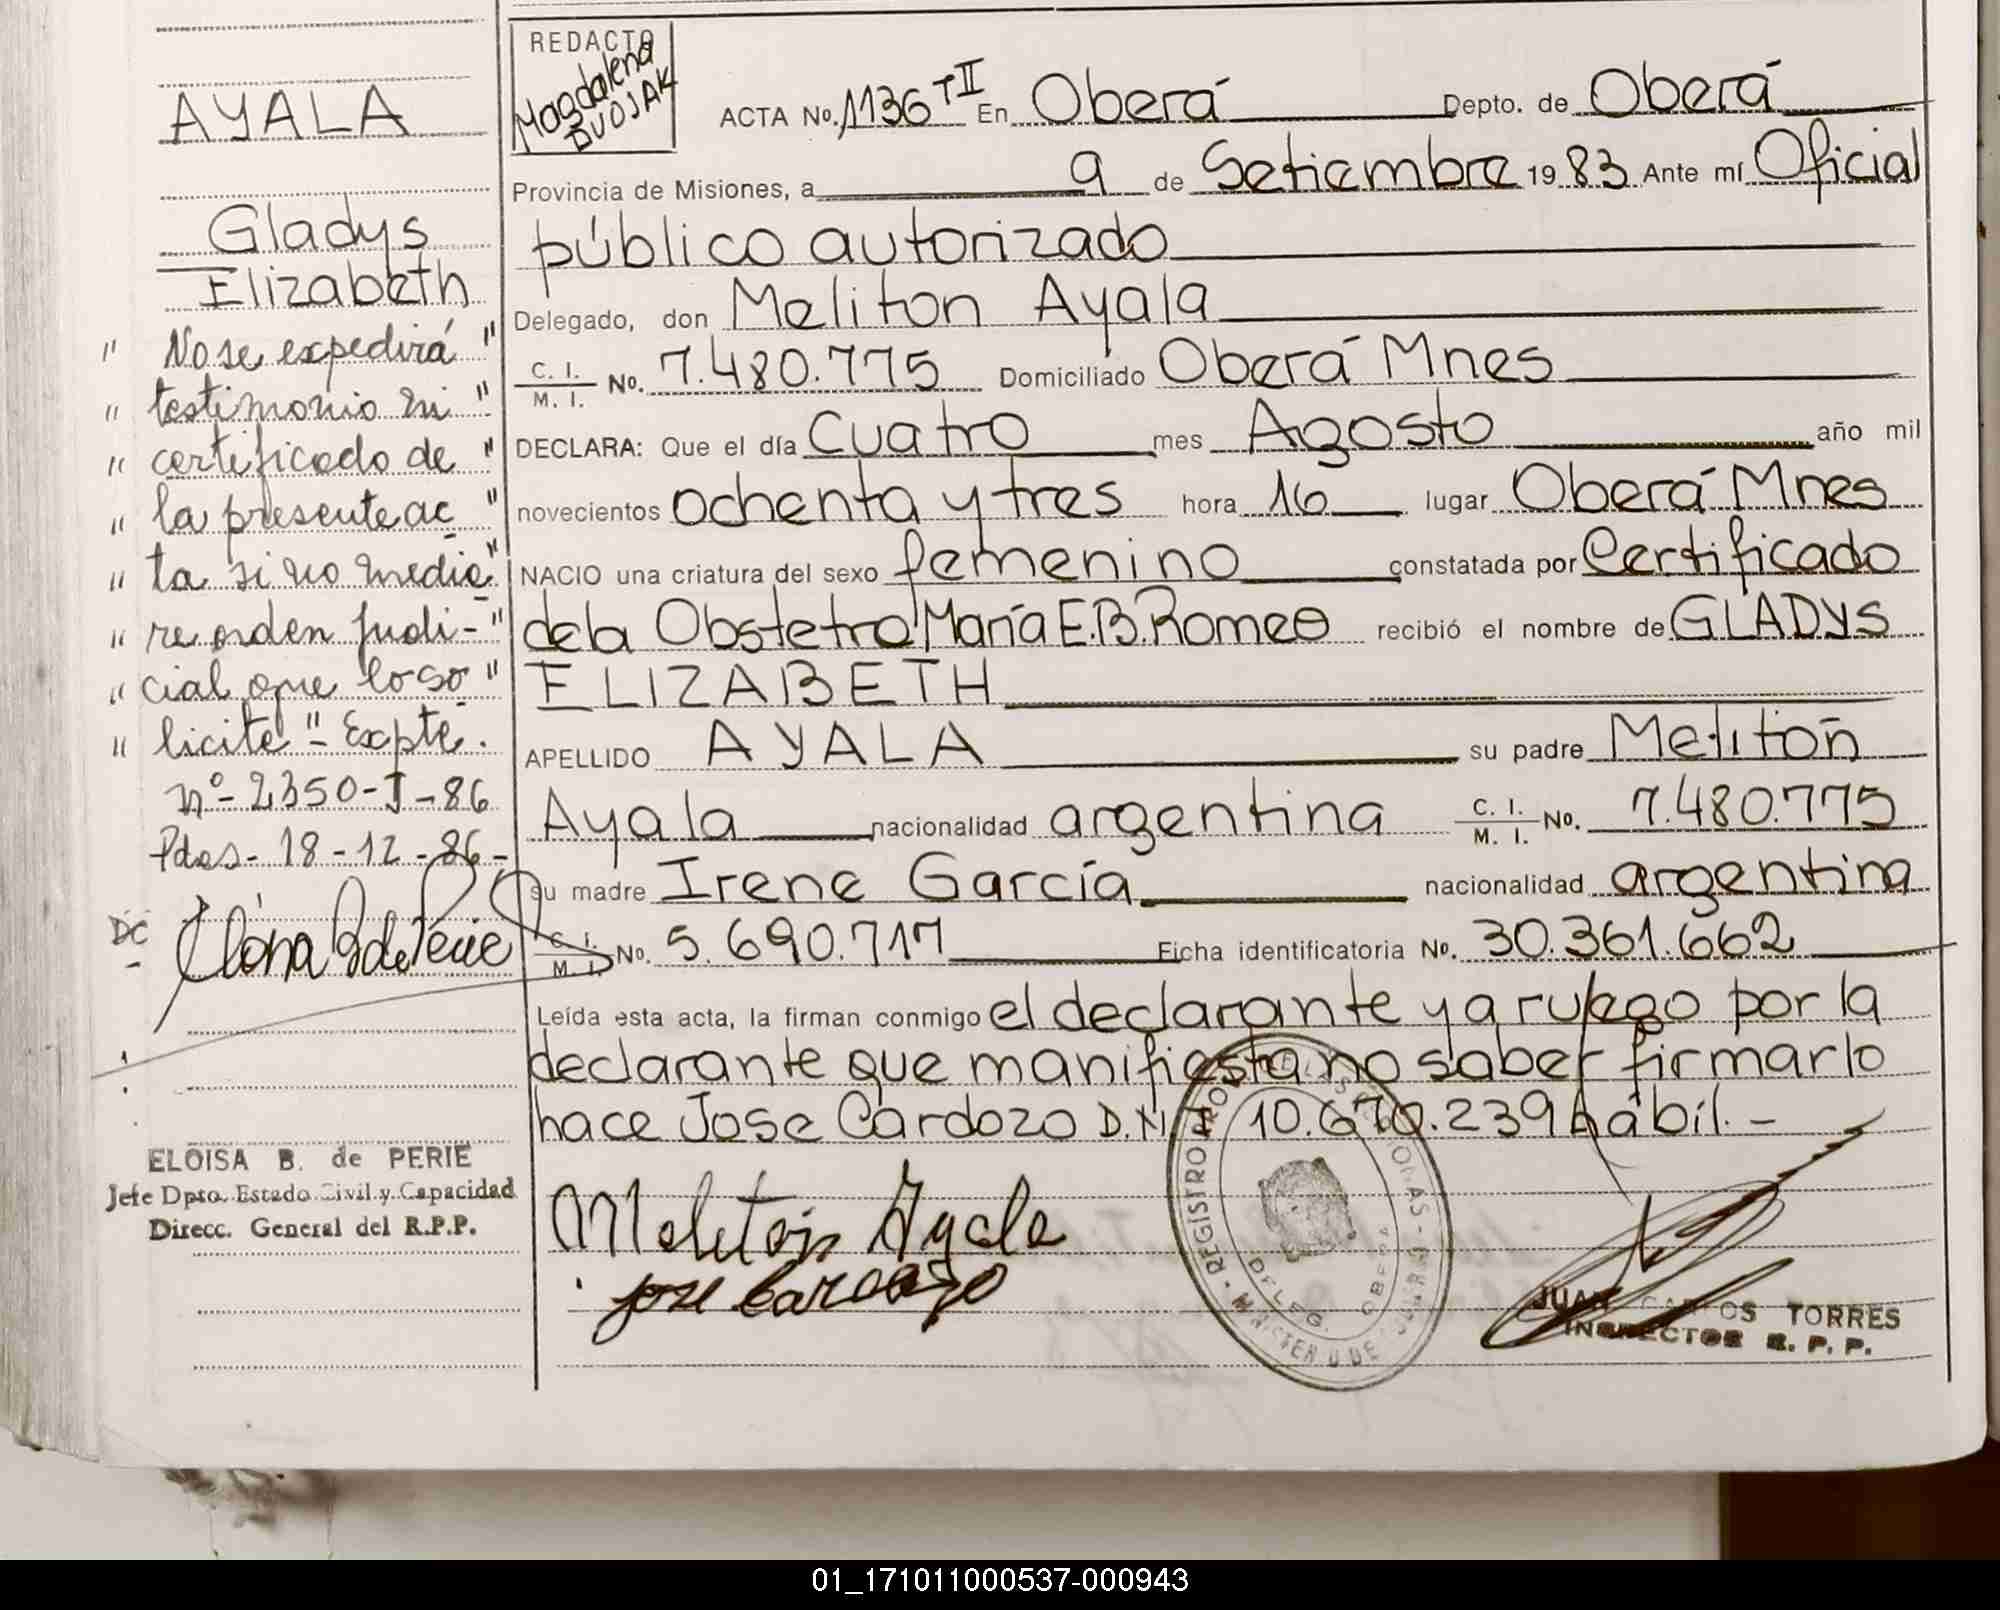 AYALA
Gladys
Elizabeth
" No se expedirá "
" testimonio ni "
" certificado de "
" la presente ac "
" ta si no media "
" re orden judi- "
" cial que lo so "
" licite " - Expte.
nº - 2350-J-86
Pdas - 18-12-86-
DC
ELOISA B. de PERIE
Jefe Dpto. Estado Civil y Capacidad
Direcc. General del R.P.P.
REDACTO
Magdalena
DUOJAK
ACTA No. 1136 TII En Oberá Depto. de Oberá
Provincia de Misiones, a 9 de Setiembre 1983 Ante mí Oficial
público autorizado
Delegado, don Meliton Ayala
C. I. / M. I. No. 7.480.775 Domiciliado Oberá Mnes
DECLARA: Que el día Cuatro mes Agosto año mil
novecientos ochenta y tres hora 16 lugar Oberá Mnes
NACIO una criatura del sexo femenino constatada por Certificado
de la Obstetra María E.B. Romeo recibió el nombre de GLADYS
ELIZABETH
APELLIDO AYALA su padre Melitón
Ayala nacionalidad argentina C. I. / M. I. No. 7.480.775
su madre Irene García nacionalidad argentina
C. I. / M. I. No. 5.690.717 Ficha identificatoria No. 30.361.662
Leída esta acta, la firman conmigo el declarante y a ruego por la
declarante que manifiesta no saber firmar lo
hace Jose Cardozo D.N.I 10.670.239 hábil.-
Meliton Ayala
Jose Cardozo
DELEG. OBERA
JUAN CARLOS TORRES
INSPECTOR R. P. P.
01_171011000537-000943